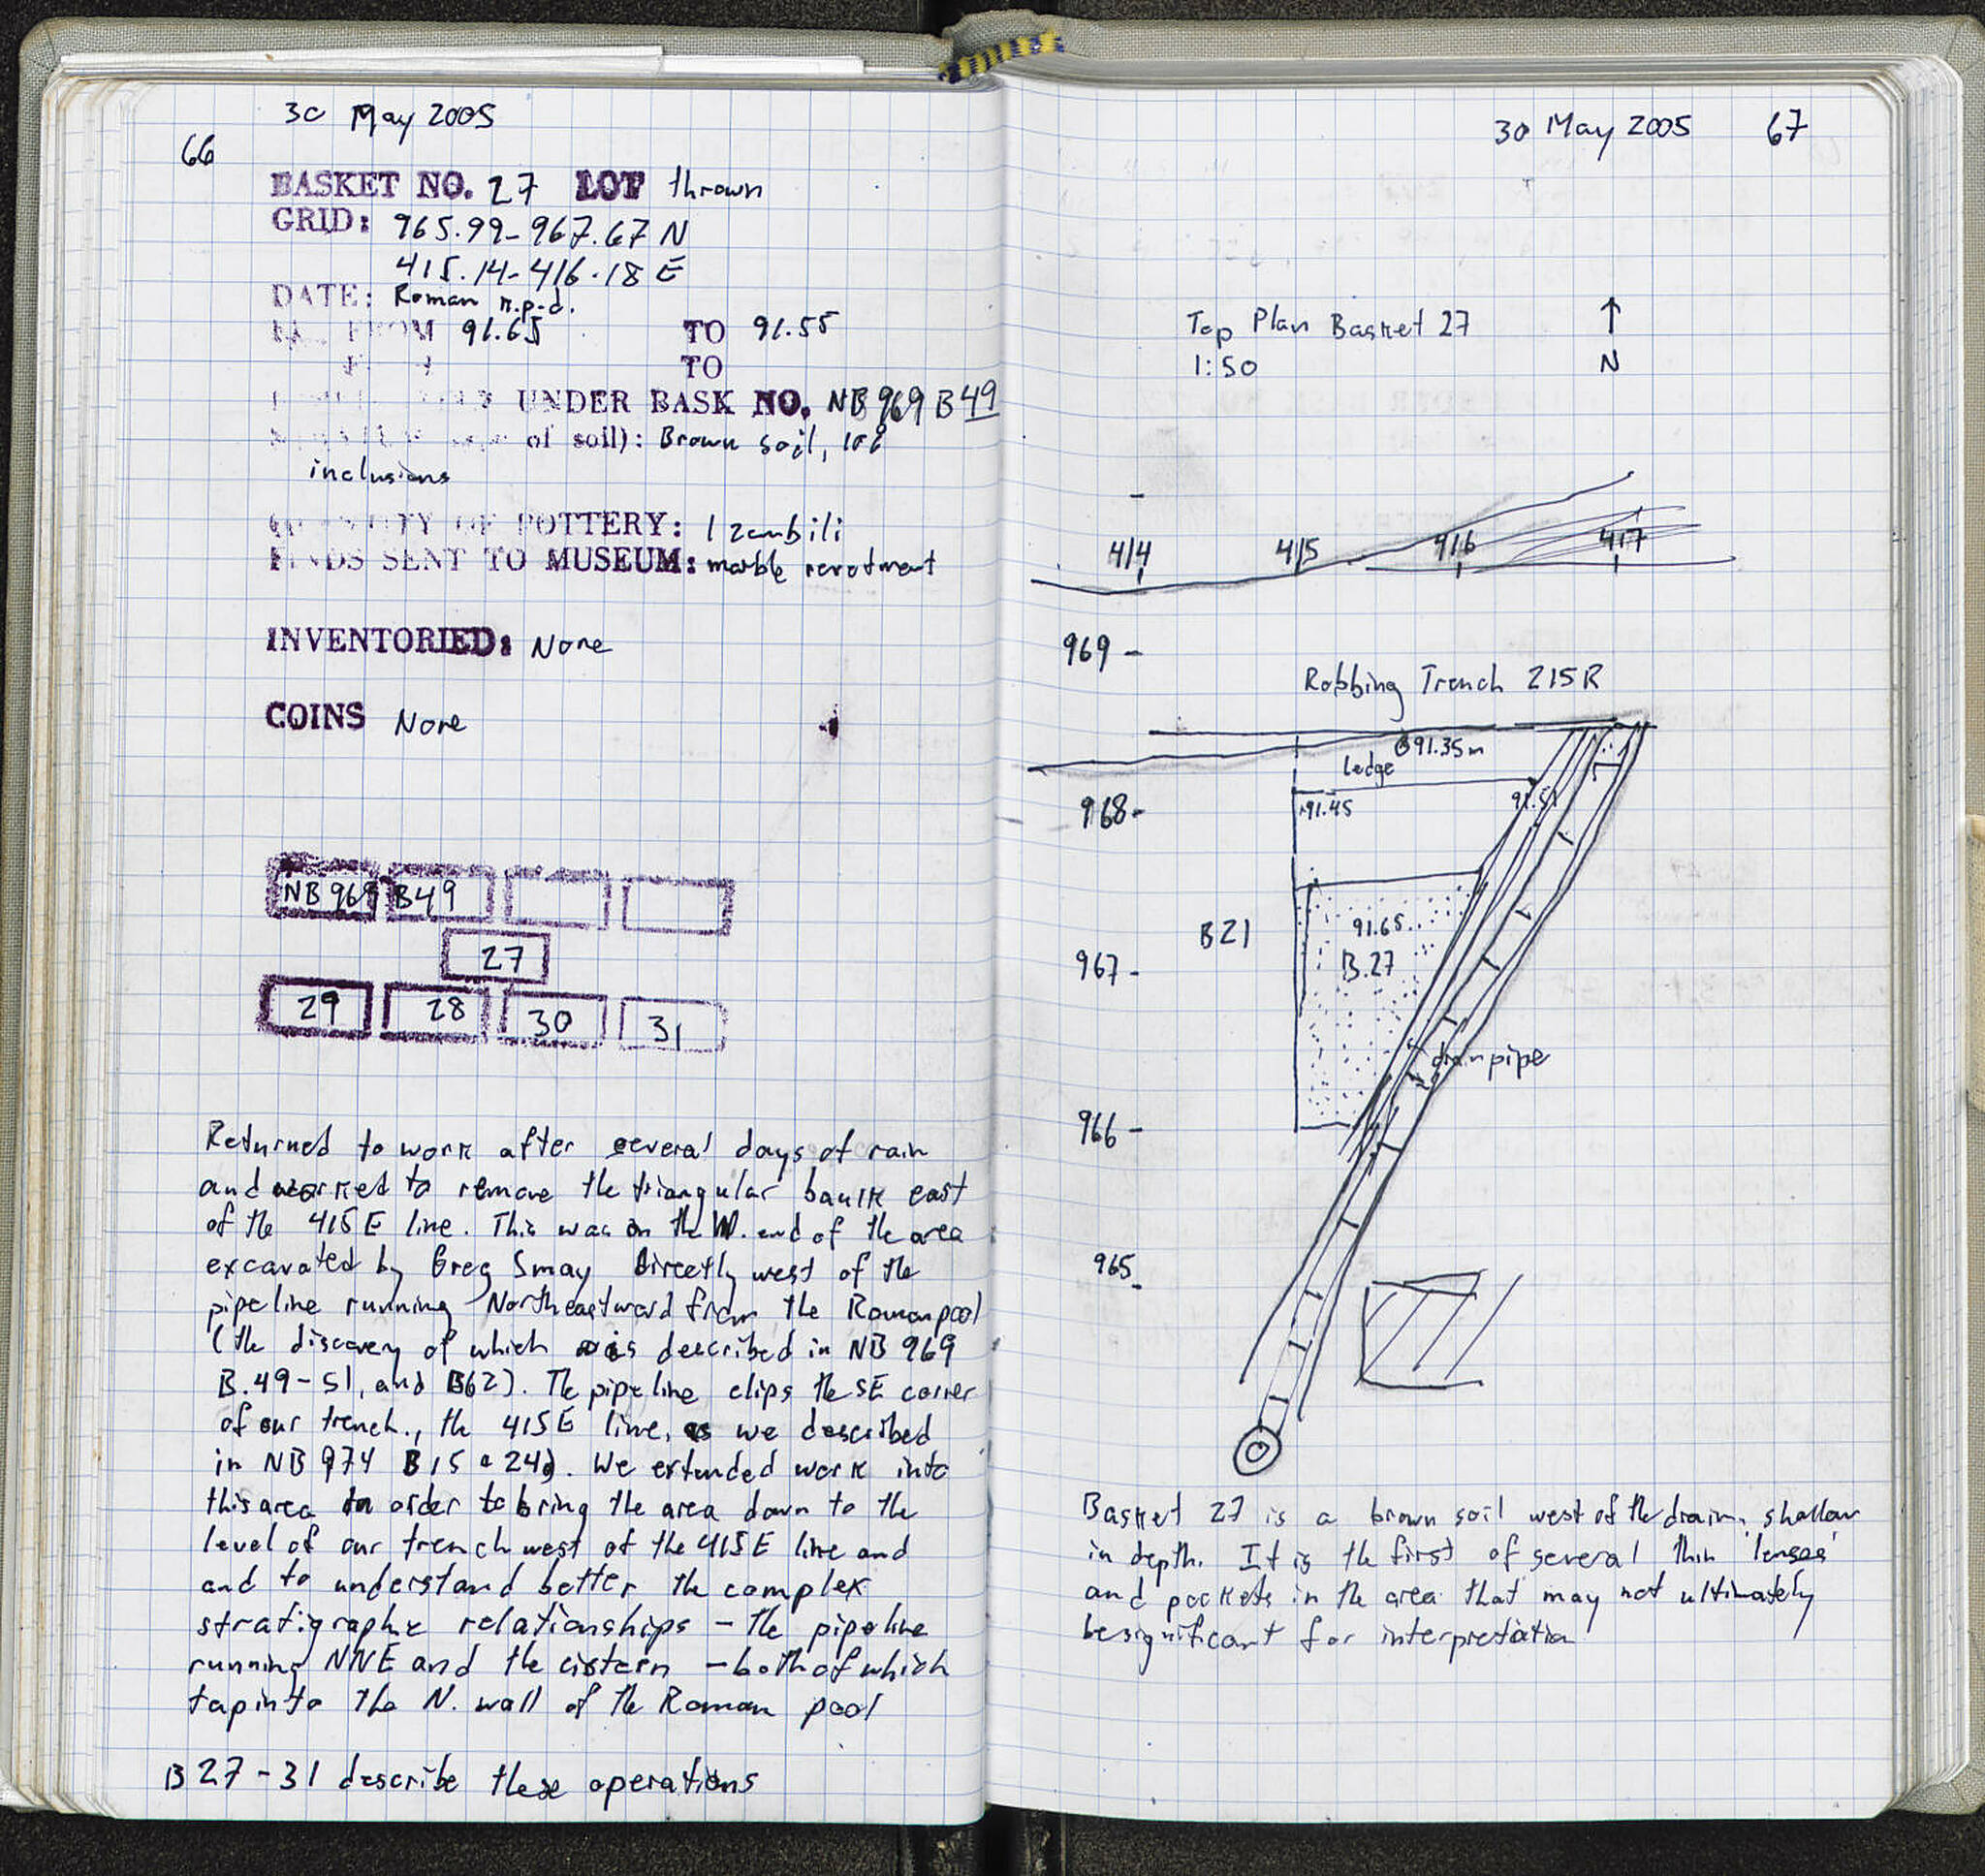 30 May 2005
66
BASKET NO. 27 LOT thrown
GRID: 965.99-967.67 N
415.14-416.18 E
DATE: Roman n.p.d.
FROM 91.65 TO 91.55
TO
UNDER BASK NO. NB 969 B 49
of soil): Brown soil, 10%
inclusions
QUANTITY OF POTTERY: 1 zembili
FINDS SENT TO MUSEUM: marble revetment
INVENTORIED: None
COINS None
NB 969 B49
27
29 28 30 31
Returned to work after several days of rain
and worked to remove the triangular baulk east
of the 415 E line. This was on the W. end of the area
excavated by Greg Smay directly west of the
pipeline running Northeastward from the Roman pool
(the discovery of which is described in NB 969
B.49-51, and B62). The pipeline clips the SE corner
of our trench., the 415E line, as we described
in NB 974 B15 + 24). We extended work into
this area in order to bring the area down to the
level of our trench west of the 415E line and
and to understand better the complex
stratigraphic relationships - the pipeline
running NNE and the cistern - both of which
tap into the N. wall of the Roman pool
B 27-31 describe these operations
30 May 2005 67
Top Plan Basket 27
1:50 N
414 415 416 417
969
Robbing Trench 215R
@91.35m
ledge
968
91.45 91.51
91.65
B21
967
B.27
drainpipe
966
965
Basket 27 is a brown soil west of the drain, shallow
in depth. It is the first of several thin 'lenses'
and pockets in the area that may not ultimately
be significant for interpretation